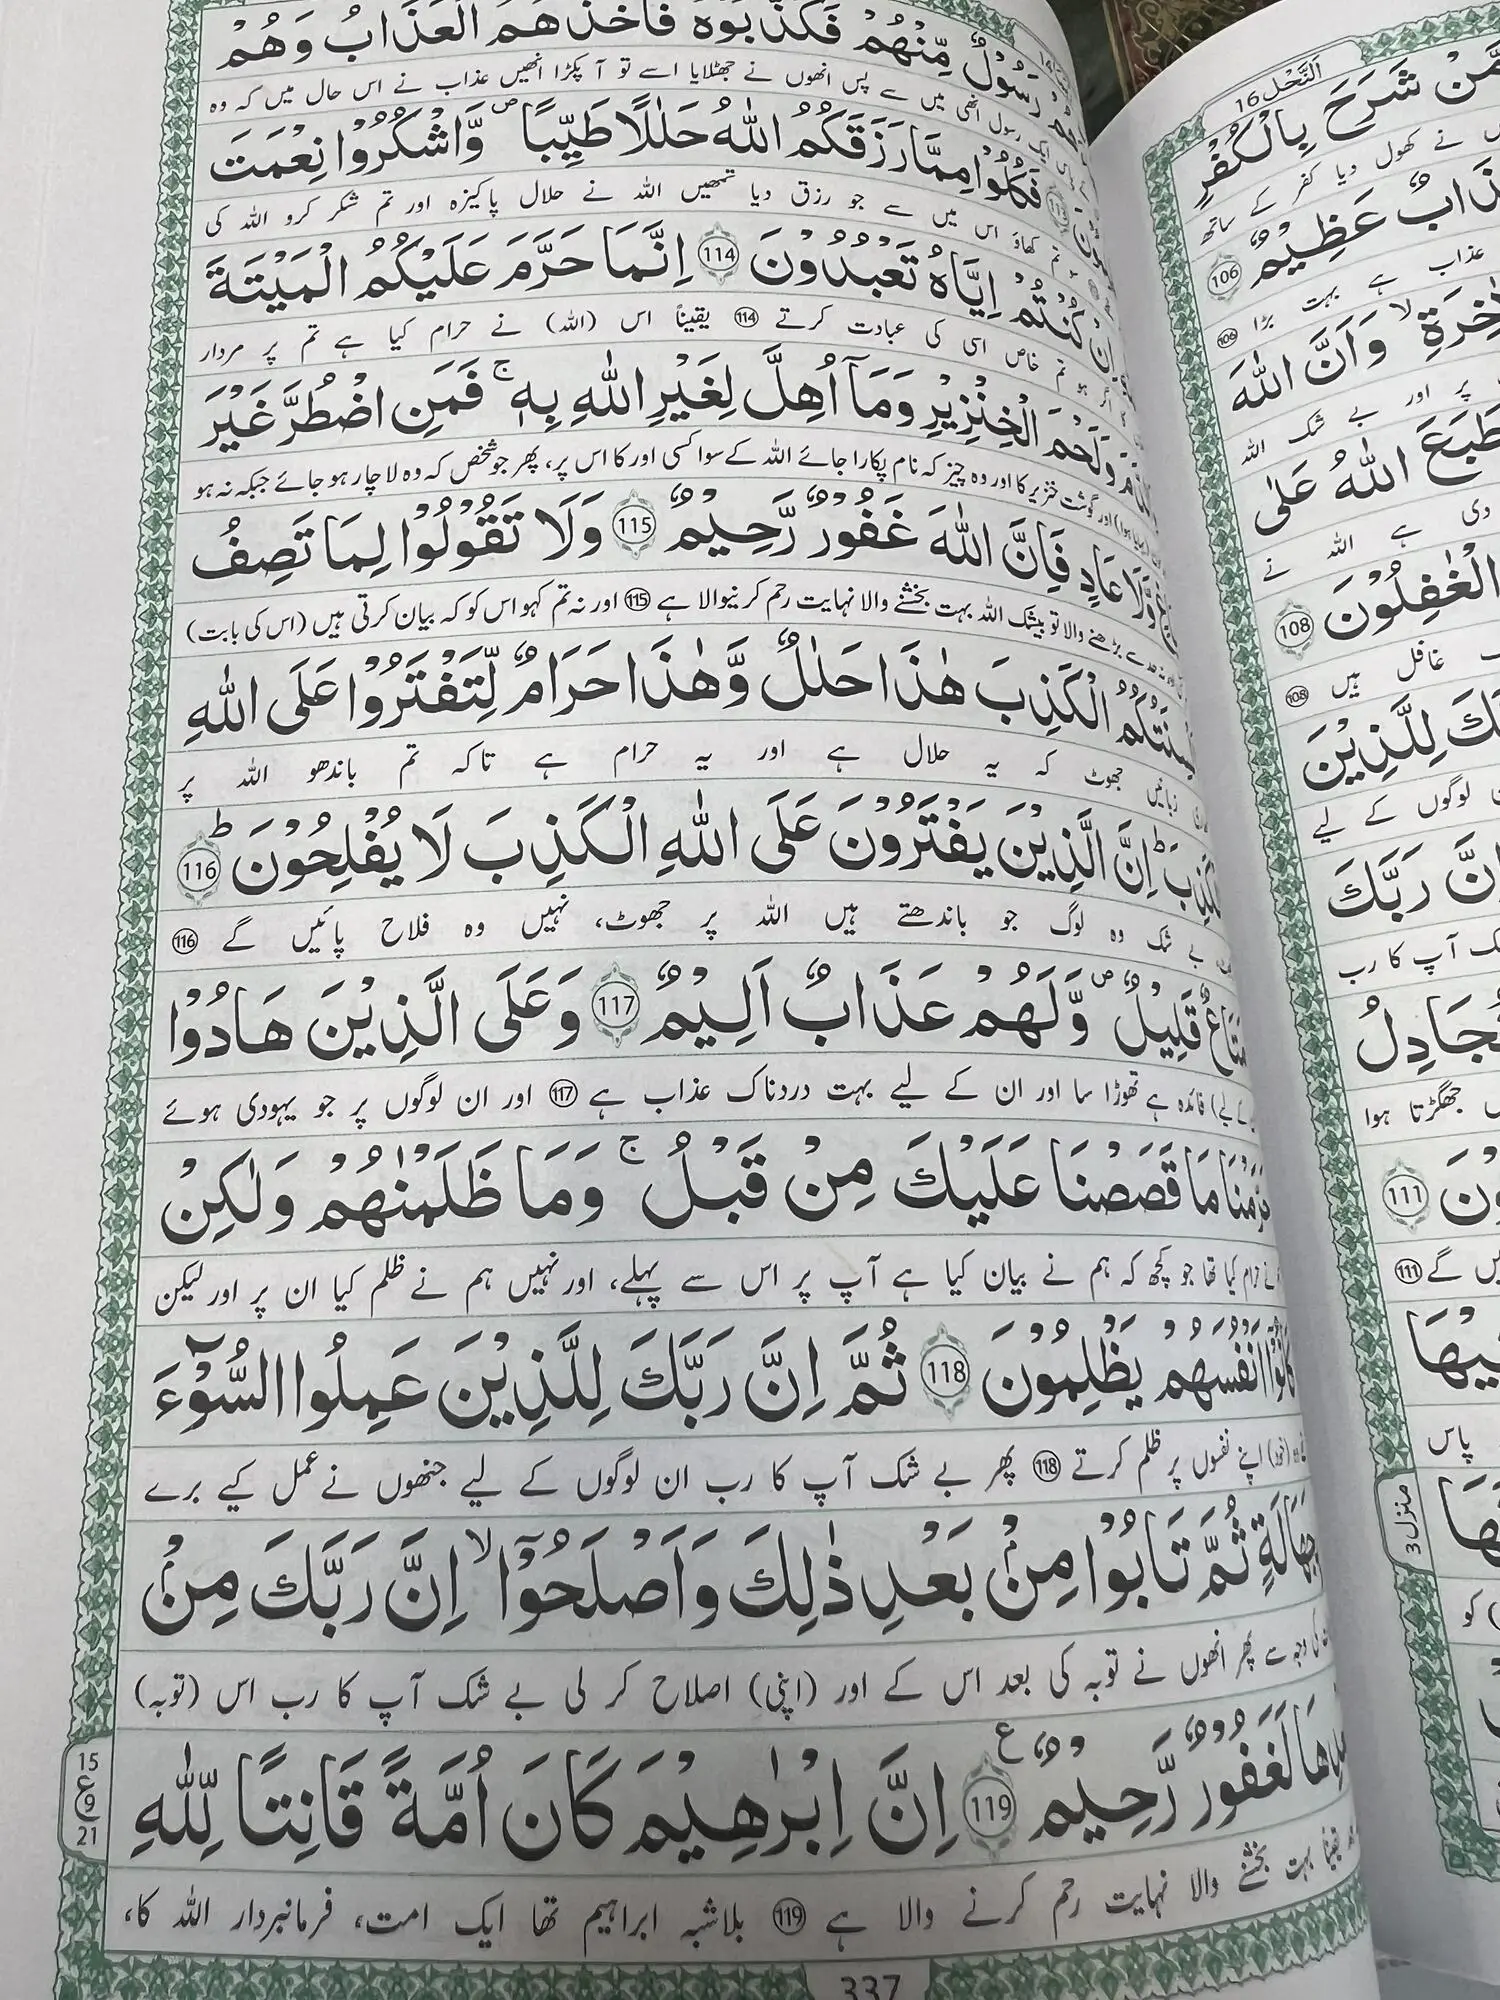 رَسُوْلٌ مِّنْهُمْ فَكَذَّبُوْهُ فَاَخَذَهُمُ الْعَذَابُ وَهُمْ
ایک رسول انھی میں سے پس انھوں نے جھٹلایا اسے تو آ پکڑا انھیں عذاب نے اس حال میں کہ وہ
113 فَكُلُوْا مِمَّا رَزَقَكُمُ اللّٰهُ حَلٰلًا طَيِّبًا ۪ وَّاشْكُرُوْا نِعْمَتَ
تم کھاؤ اس میں سے جو رزق دیا تمھیں اللہ نے حلال پاکیزہ اور تم شکر کرو اللہ کی
اِنْ كُنْتُمْ اِيَّاهُ تَعْبُدُوْنَ 114 اِنَّمَا حَرَّمَ عَلَيْكُمُ الْمَيْتَةَ
اگر ہو تم خاص اسی کی عبادت کرتے 114 یقیناً اس (اللہ) نے حرام کیا ہے تم پر مردار
وَلَحْمَ الْخِنْزِيْرِ وَمَآ اُهِلَّ لِغَيْرِ اللّٰهِ بِهٖ ۚ فَمَنِ اضْطُرَّ غَيْرَ
اور گوشت خنزیر کا اور وہ چیز کہ نام پکارا جائے اللہ کے سوا کسی اور کا اس پر، پھر جو شخص کہ وہ لاچار ہو جائے جبکہ نہ ہو
وَّلَا عَادٍ فَاِنَّ اللّٰهَ غَفُوْرٌ رَّحِيْمٌ 115 وَلَا تَقُوْلُوْا لِمَا تَصِفُ
حد سے بڑھنے والا تو بیشک اللہ بہت بخشنے والا نہایت رحم کرنیوالا ہے 115 اور نہ تم کہو اس کو کہ بیان کرتی ہیں (اس کی بابت)
اَلْسِنَتُكُمُ الْكَذِبَ هٰذَا حَلٰلٌ وَّهٰذَا حَرَامٌ لِّتَفْتَرُوْا عَلَى اللّٰهِ
زبانیں جھوٹ کہ یہ حلال ہے اور یہ حرام ہے تاکہ تم باندھو اللہ پر
الْكَذِبَ ؕ اِنَّ الَّذِيْنَ يَفْتَرُوْنَ عَلَى اللّٰهِ الْكَذِبَ لَا يُفْلِحُوْنَ ؕ 116
بے شک وہ لوگ جو باندھتے ہیں اللہ پر جھوٹ، نہیں وہ فلاح پائیں گے 116
مَتَاعٌ قَلِيْلٌ ۪ وَّلَهُمْ عَذَابٌ اَلِيْمٌ 117 وَعَلَى الَّذِيْنَ هَادُوْا
فائدہ ہے تھوڑا سا اور ان کے لیے بہت دردناک عذاب ہے 117 اور ان لوگوں پر جو یہودی ہوئے
حَرَّمْنَا مَا قَصَصْنَا عَلَيْكَ مِنْ قَبْلُ ۚ وَمَا ظَلَمْنٰهُمْ وَلٰكِنْ
نے حرام کیا تھا جو کچھ کہ ہم نے بیان کیا ہے آپ پر اس سے پہلے، اور نہیں ہم نے ظلم کیا ان پر اور لیکن
كَانُوْٓا اَنْفُسَهُمْ يَظْلِمُوْنَ 118 ثُمَّ اِنَّ رَبَّكَ لِلَّذِيْنَ عَمِلُوا السُّوْٓءَ
(خود) اپنے نفسوں پر ظلم کرتے 118 پھر بے شک آپ کا رب ان لوگوں کے لیے جنھوں نے عمل کیے برے
بِجَهَالَةٍ ثُمَّ تَابُوْا مِنْۢ بَعْدِ ذٰلِكَ وَاَصْلَحُوْٓا ۙ اِنَّ رَبَّكَ مِنْۢ
کی وجہ سے پھر انھوں نے توبہ کی بعد اس کے اور (اپنی) اصلاح کر لی بے شک آپ کا رب اس (توبہ)
بَعْدِهَا لَغَفُوْرٌ رَّحِيْمٌ 119 ع اِنَّ اِبْرٰهِيْمَ كَانَ اُمَّةً قَانِتًا لِّلّٰهِ
یقیناً بہت بخشنے والا نہایت رحم کرنے والا ہے 119 بلاشبہ ابراہیم تھا ایک امت، فرمانبردار اللہ کا،
15
ع 9
21
337
اَلنَّحْل 16
مَّنْ شَرَحَ بِالْكُفْرِ
نے کھول دیا کفر کے ساتھ
عَذَابٌ عَظِيْمٌ 106
عذاب ہے بہت بڑا 106
وَاَنَّ اللّٰهَ
پر اور بے شک اللہ
طَبَعَ اللّٰهُ عَلٰى
دی ہے اللہ نے
الْغٰفِلُوْنَ 108
غافل ہیں 108
لِلَّذِيْنَ
لوگوں کے لیے
اِنَّ رَبَّكَ
آپ کا رب
تُجَادِلُ
جھگڑتا ہوا
111
گے 111
پاس
منزل 3
کو